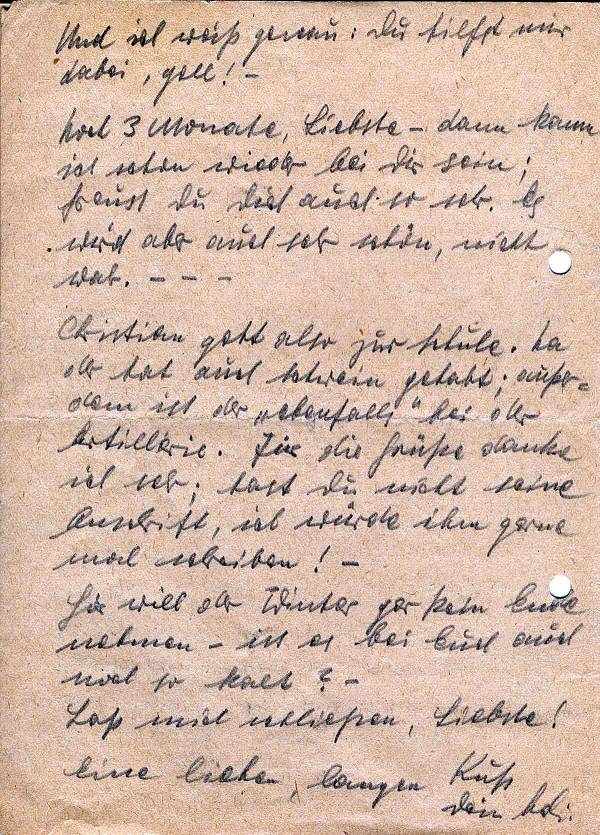 Und ich weiß genau: Du hilfst mir
dabei, gell! –
Noch 3 Monate, Liebste – dann kann
ich schon wieder bei Dir sein;
freust Du Dich auch so sehr. Es
wird aber auch sehr schön, nicht
wahr. – – –
Christian geht also zur Schule. Na
der hat auch Schwein gehabt; außer=
dem ist der „ebenfalls" bei der
Artillerie. Für die Grüße danke
ich sehr; hast Du nicht seine
Anschrift, ich würde ihm gerne
mal schreiben! –
Hier will der Winter gar kein Ende
nehmen – ist es bei Euch auch
noch so kalt? –
Laß mich schließen, Liebste!
Eine lieben, langen Kuß
Dein